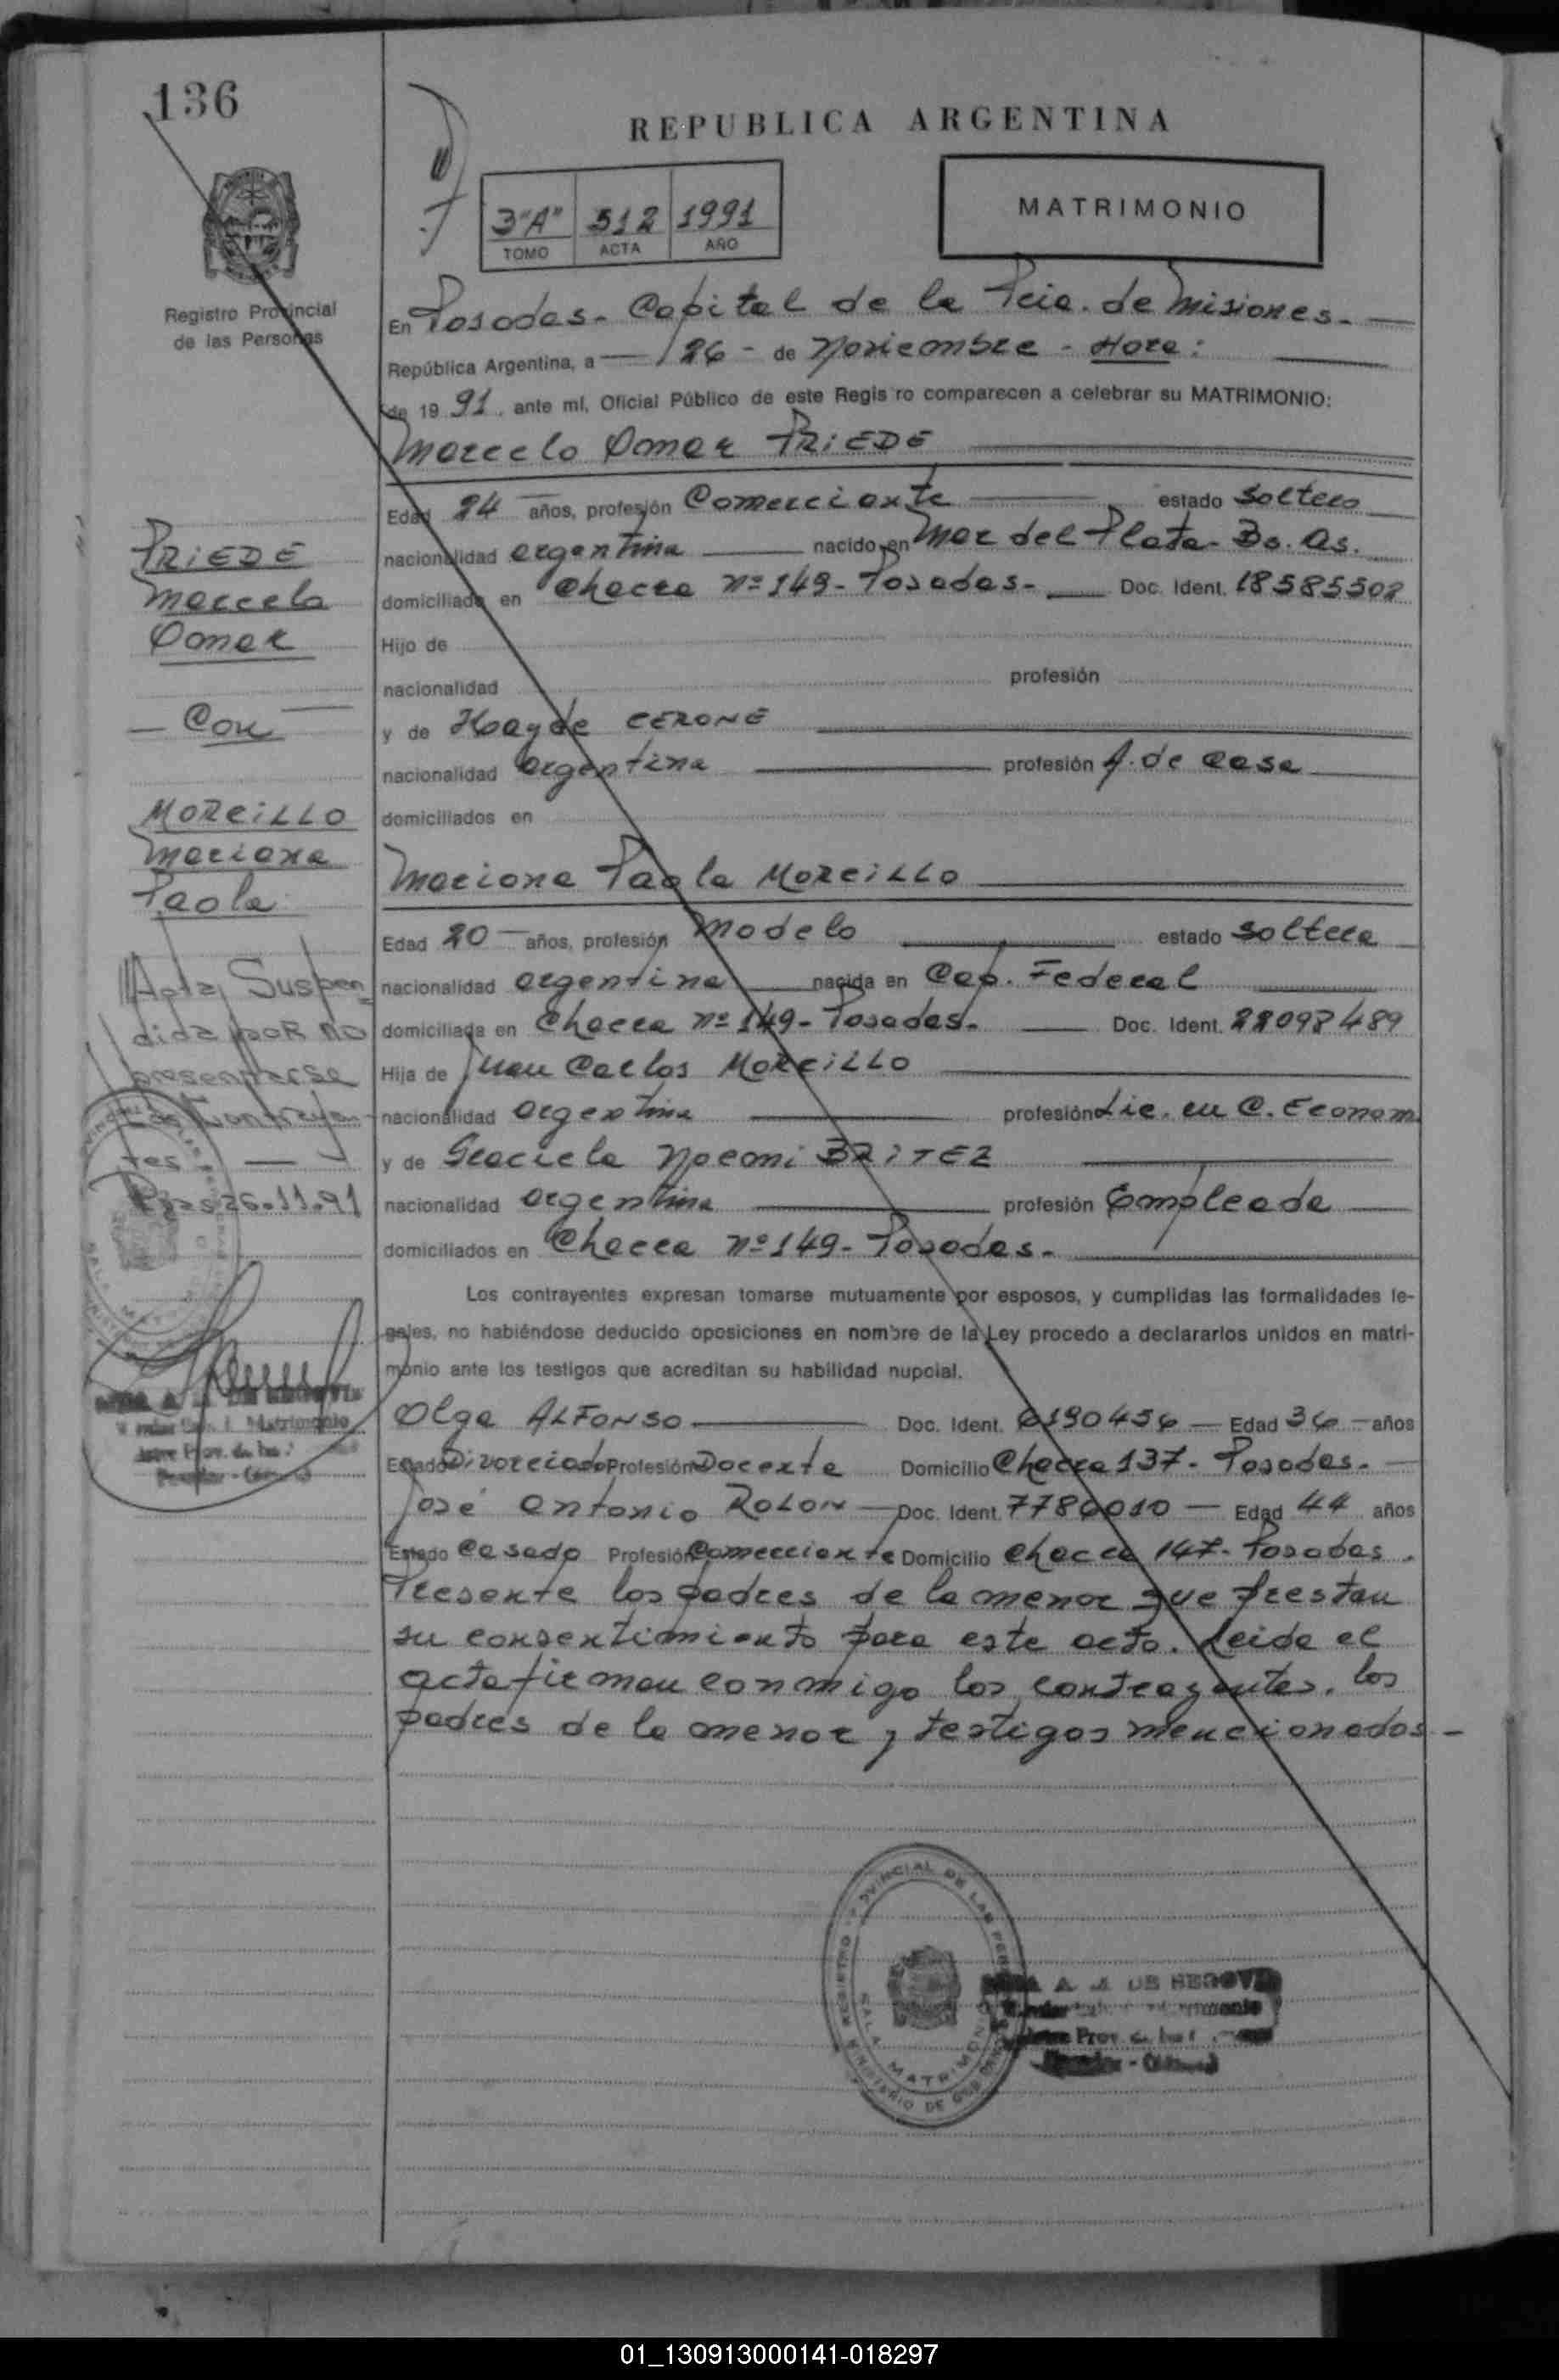 136
REPUBLICA ARGENTINA
3"A" 512 1991
TOMO ACTA AÑO
MATRIMONIO
Registro Provincial
de las Personas
En Posadas - Capital de la Pcia. de Misiones. -
República Argentina, a — 26 - de Noviembre - Hora:
de 19 91, ante mí, Oficial Público de este Regis ro comparecen a celebrar su MATRIMONIO:
Marcelo Omar PRIEDE
Edad 24 años, profesión Comerciante estado Soltero
nacionalidad argentina nacido en Mar del Plata - Bs. As.
domiciliado en Chacra Nº 149 - Posadas - Doc. Ident. 18585502
Hijo de
nacionalidad profesión
y de Hayde CERONE
nacionalidad argentina profesión A. de Casa
domiciliados en
Mariana Paola MORCILLO
Edad 20 años, profesión Modelo estado Soltera
nacionalidad argentina nacida en Cap. Federal
domiciliada en Chacra Nº 149 - Posadas. Doc. Ident. 22098489
Hija de Juan Carlos MORCILLO
nacionalidad argentina profesión Lic. en C. Econom.
y de Graciela Noemi BRITEZ
nacionalidad argentina profesión Empleada
domiciliados en Chacra Nº 149 - Posadas -
Los contrayentes expresan tomarse mutuamente por esposos, y cumplidas las formalidades le-
gales, no habiéndose deducido oposiciones en nombre de la Ley procedo a declararlos unidos en matri-
monio ante los testigos que acreditan su habilidad nupcial.
Olga ALFONSO Doc. Ident. 6190456 — Edad 36 - años
Estado Divorciada Profesión Docente Domicilio Chacra 137 - Posadas. -
José Antonio ROLON — Doc. Ident. 7786010 — Edad 44 años
Estado Casado Profesión Comerciante Domicilio Chacra 147 - Posadas.
Presente los padres de la menor que prestan
su consentimiento para este acto. Leida el
acta firman conmigo los contrayentes, los
padres de la menor y testigos mencionados -
PRIEDE
Marcelo
Omar
- Con
MORCILLO
Mariana
Paola
Acta Suspen-
dida por no
presentarse
los Contrayen-
tes —
26.11.91
REGISTRO PROVINCIAL DE LAS
SALA MATRIMONIO
MINISTERIO DE
A. DE SEGOVIA
01_130913000141-018297